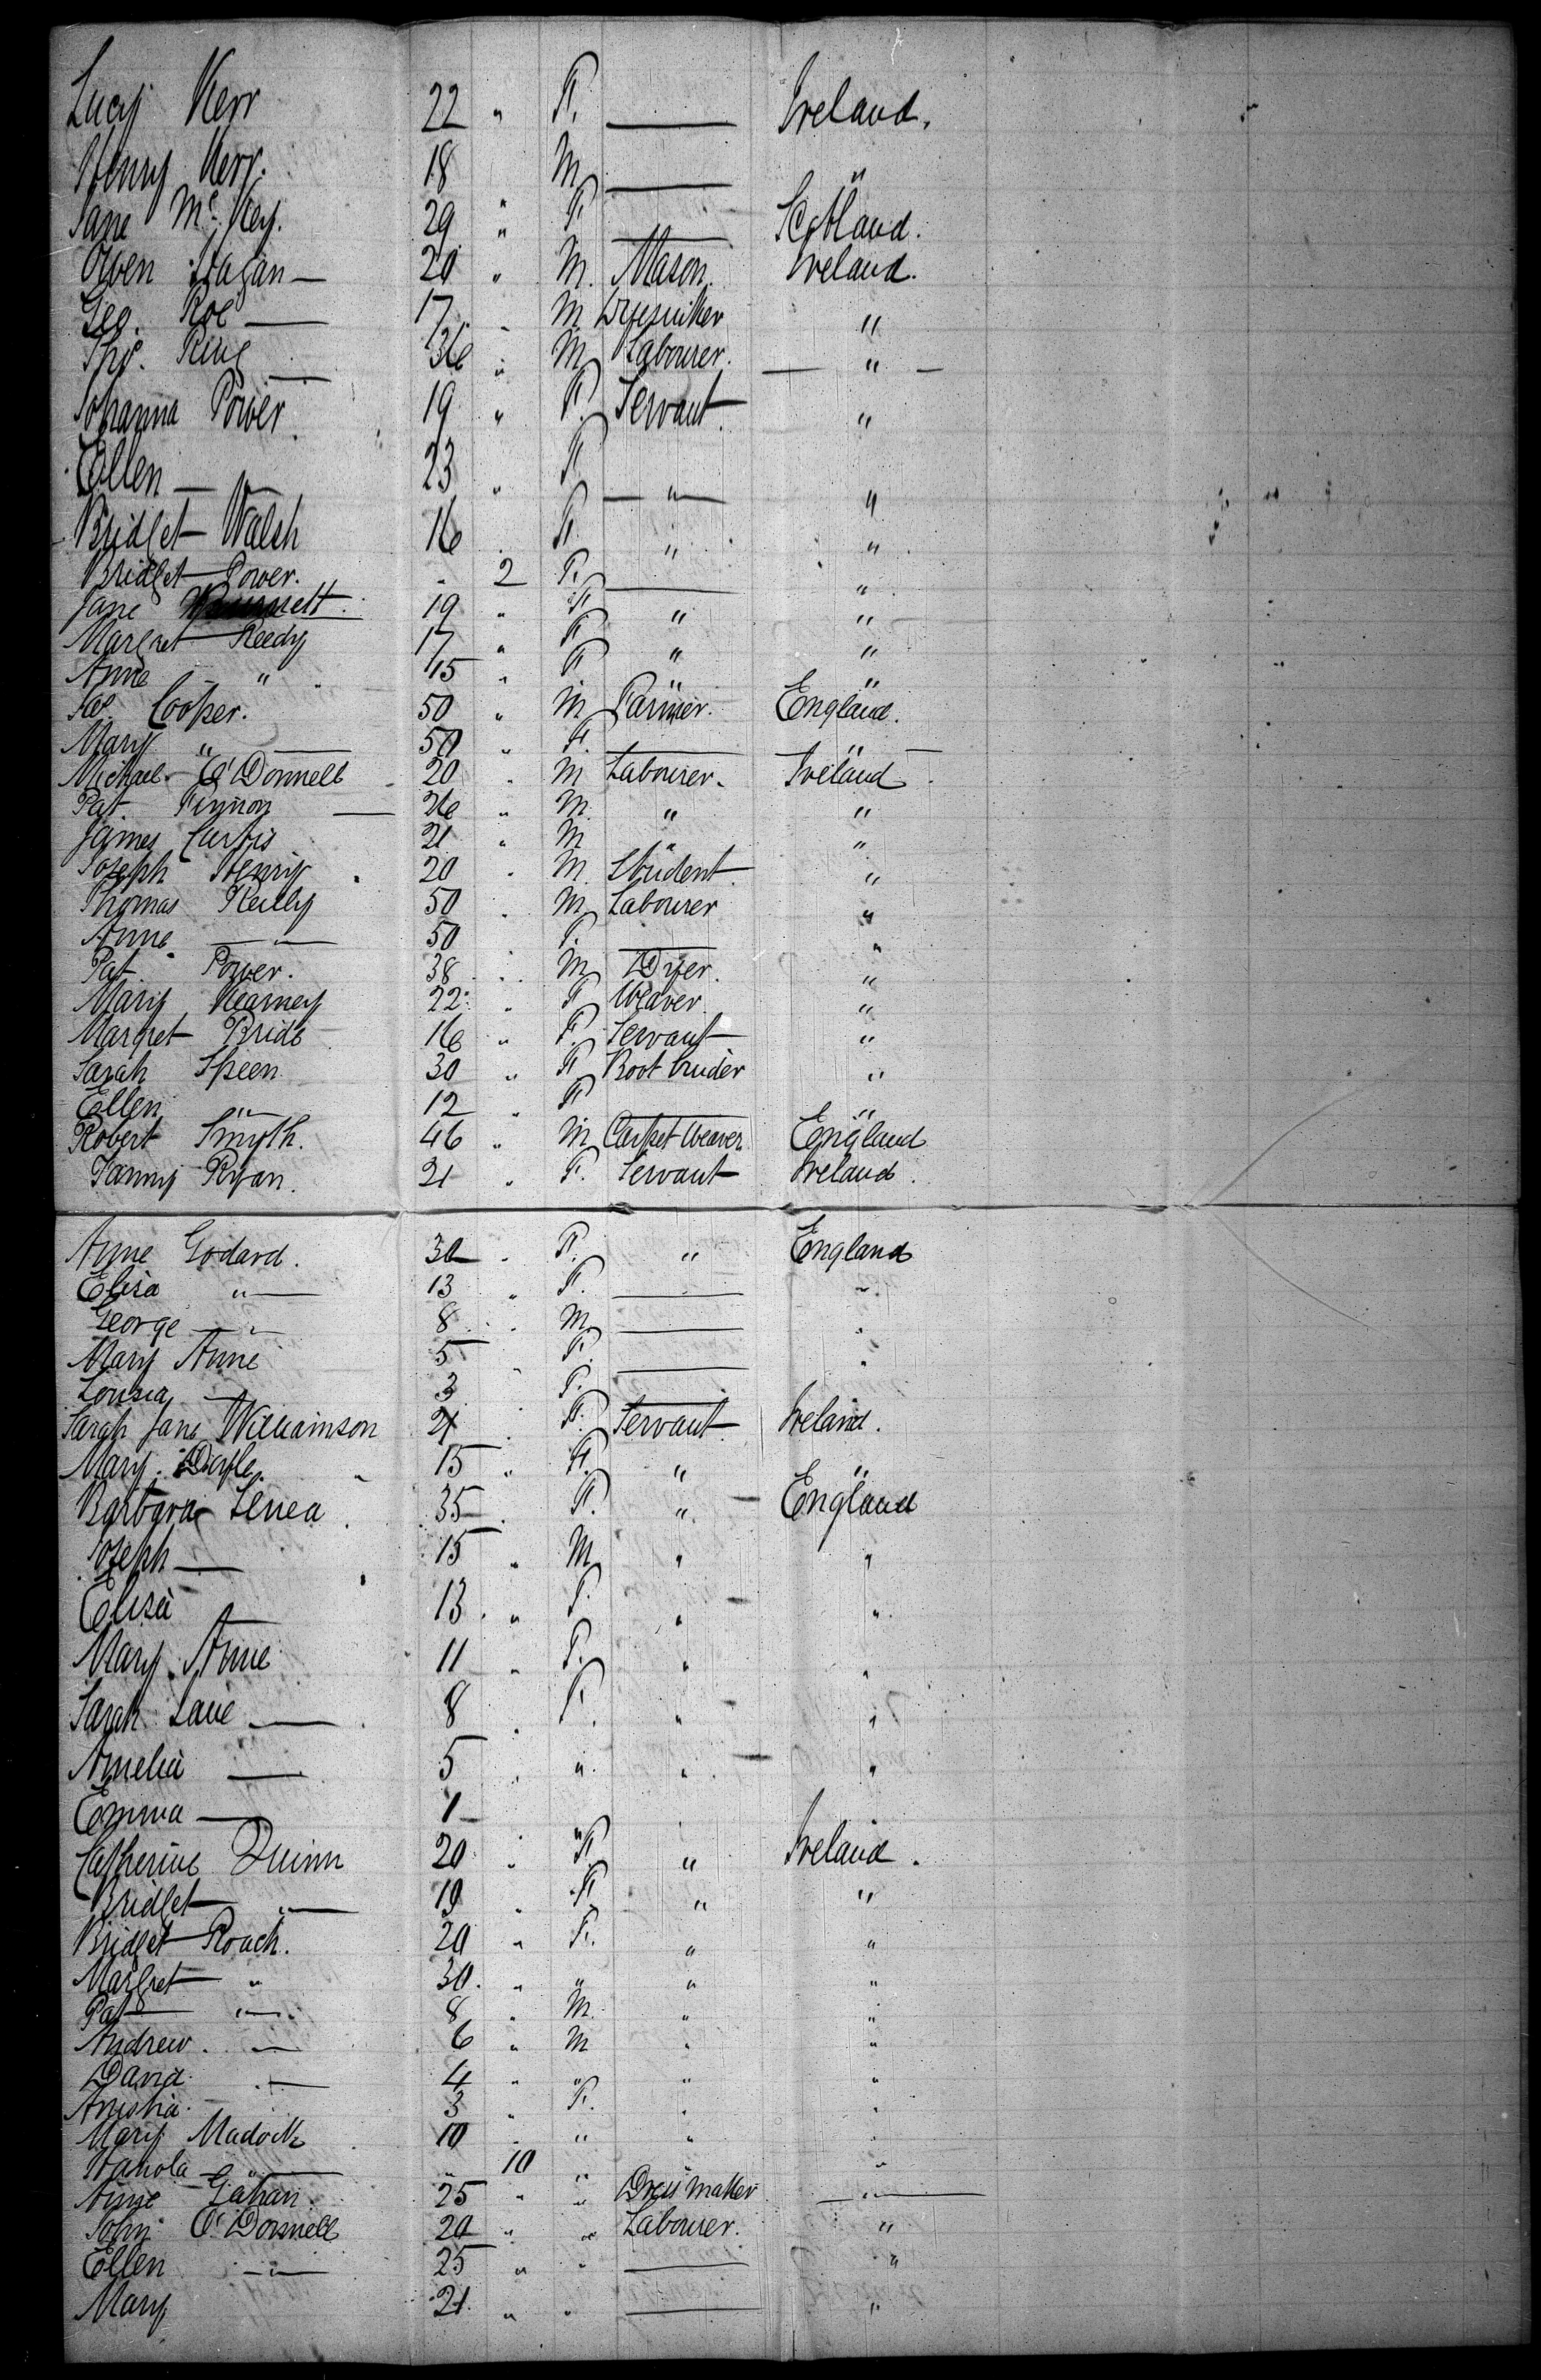 Lucy Kerr 22 " F. — Ireland.
Henry Kerr. 18 " M — "
Jane Mc Key. 29 " F — Scotland.
Owen Hagan — 20 " M. Mason. Ireland.
Geo. Roe — 17 " M "
Thos. Ring — 36 " M Labourer. — " —
Johanna Power 19 " F. Servant "
Ellen — " — 23 " F. — " — "
Bridget Walsh 16 " F. " "
Bridget Power. " 2 F. — "
Jane 19 " F " "
Margret Reedy 17 " F " "
Anne " 15 " F " "
Cooper. 50 " M Farmer. England.
Mary " — 50 " F. — "
Michael O'Donnell 20 " M Labourer. Ireland
Pat. Finnon — 26 " M. " "
James Curtis 21 " M " "
Joseph Henry 20 " M. Student "
Thomas Reilly 50 " M Labourer "
Anne — " — 50 " F. — "
Pat. Power. 38 " M Dyer. "
Mary Kearney 22 " F Weaver. "
Margret Bride 16 " F. Servant "
Sarah Speen 30 " F Boot binder "
Ellen " 12 " F — "
Robert Smyth. 46 " M Carpet Weaver England
Fanny Ryan. 21 " F. Servant Ireland.
Anne Godard. 30 " F. " England
Elisa " — 13 " F. — "
George — " 8 " M. — "
Mary Anne 5 " F. — "
Lousia — 3 " F. — "
Sarah Jane Williamson 21 " F. Servant Ireland.
Mary 15 " F. " "
Barbara 35 " F. " England
Joseph — 15 " M " "
Elisa — 13 " F. " "
Mary Anne 11 " F. " "
Sarah Jane — 8 " F. " "
Amelia — 5 " " " "
Emma — 1 " " "
Catherine Quinn 20 " F. " Ireland.
Bridget " 19 " F " "
Bridget Roach. 20 " F. " "
Margret " 30 " " " "
Pat " 8 " M. " "
Andrew. " 6 " M " "
David " 4 " " " "
3 " F. " "
Mary Madock 10 " " " "
" " 10 " "
Anne Gahan. 25 " " Dress Maker — " —
John O'Donnell 20 " " Labourer. "
Ellen — " — 25 " " — "
Mary 21 " " — "